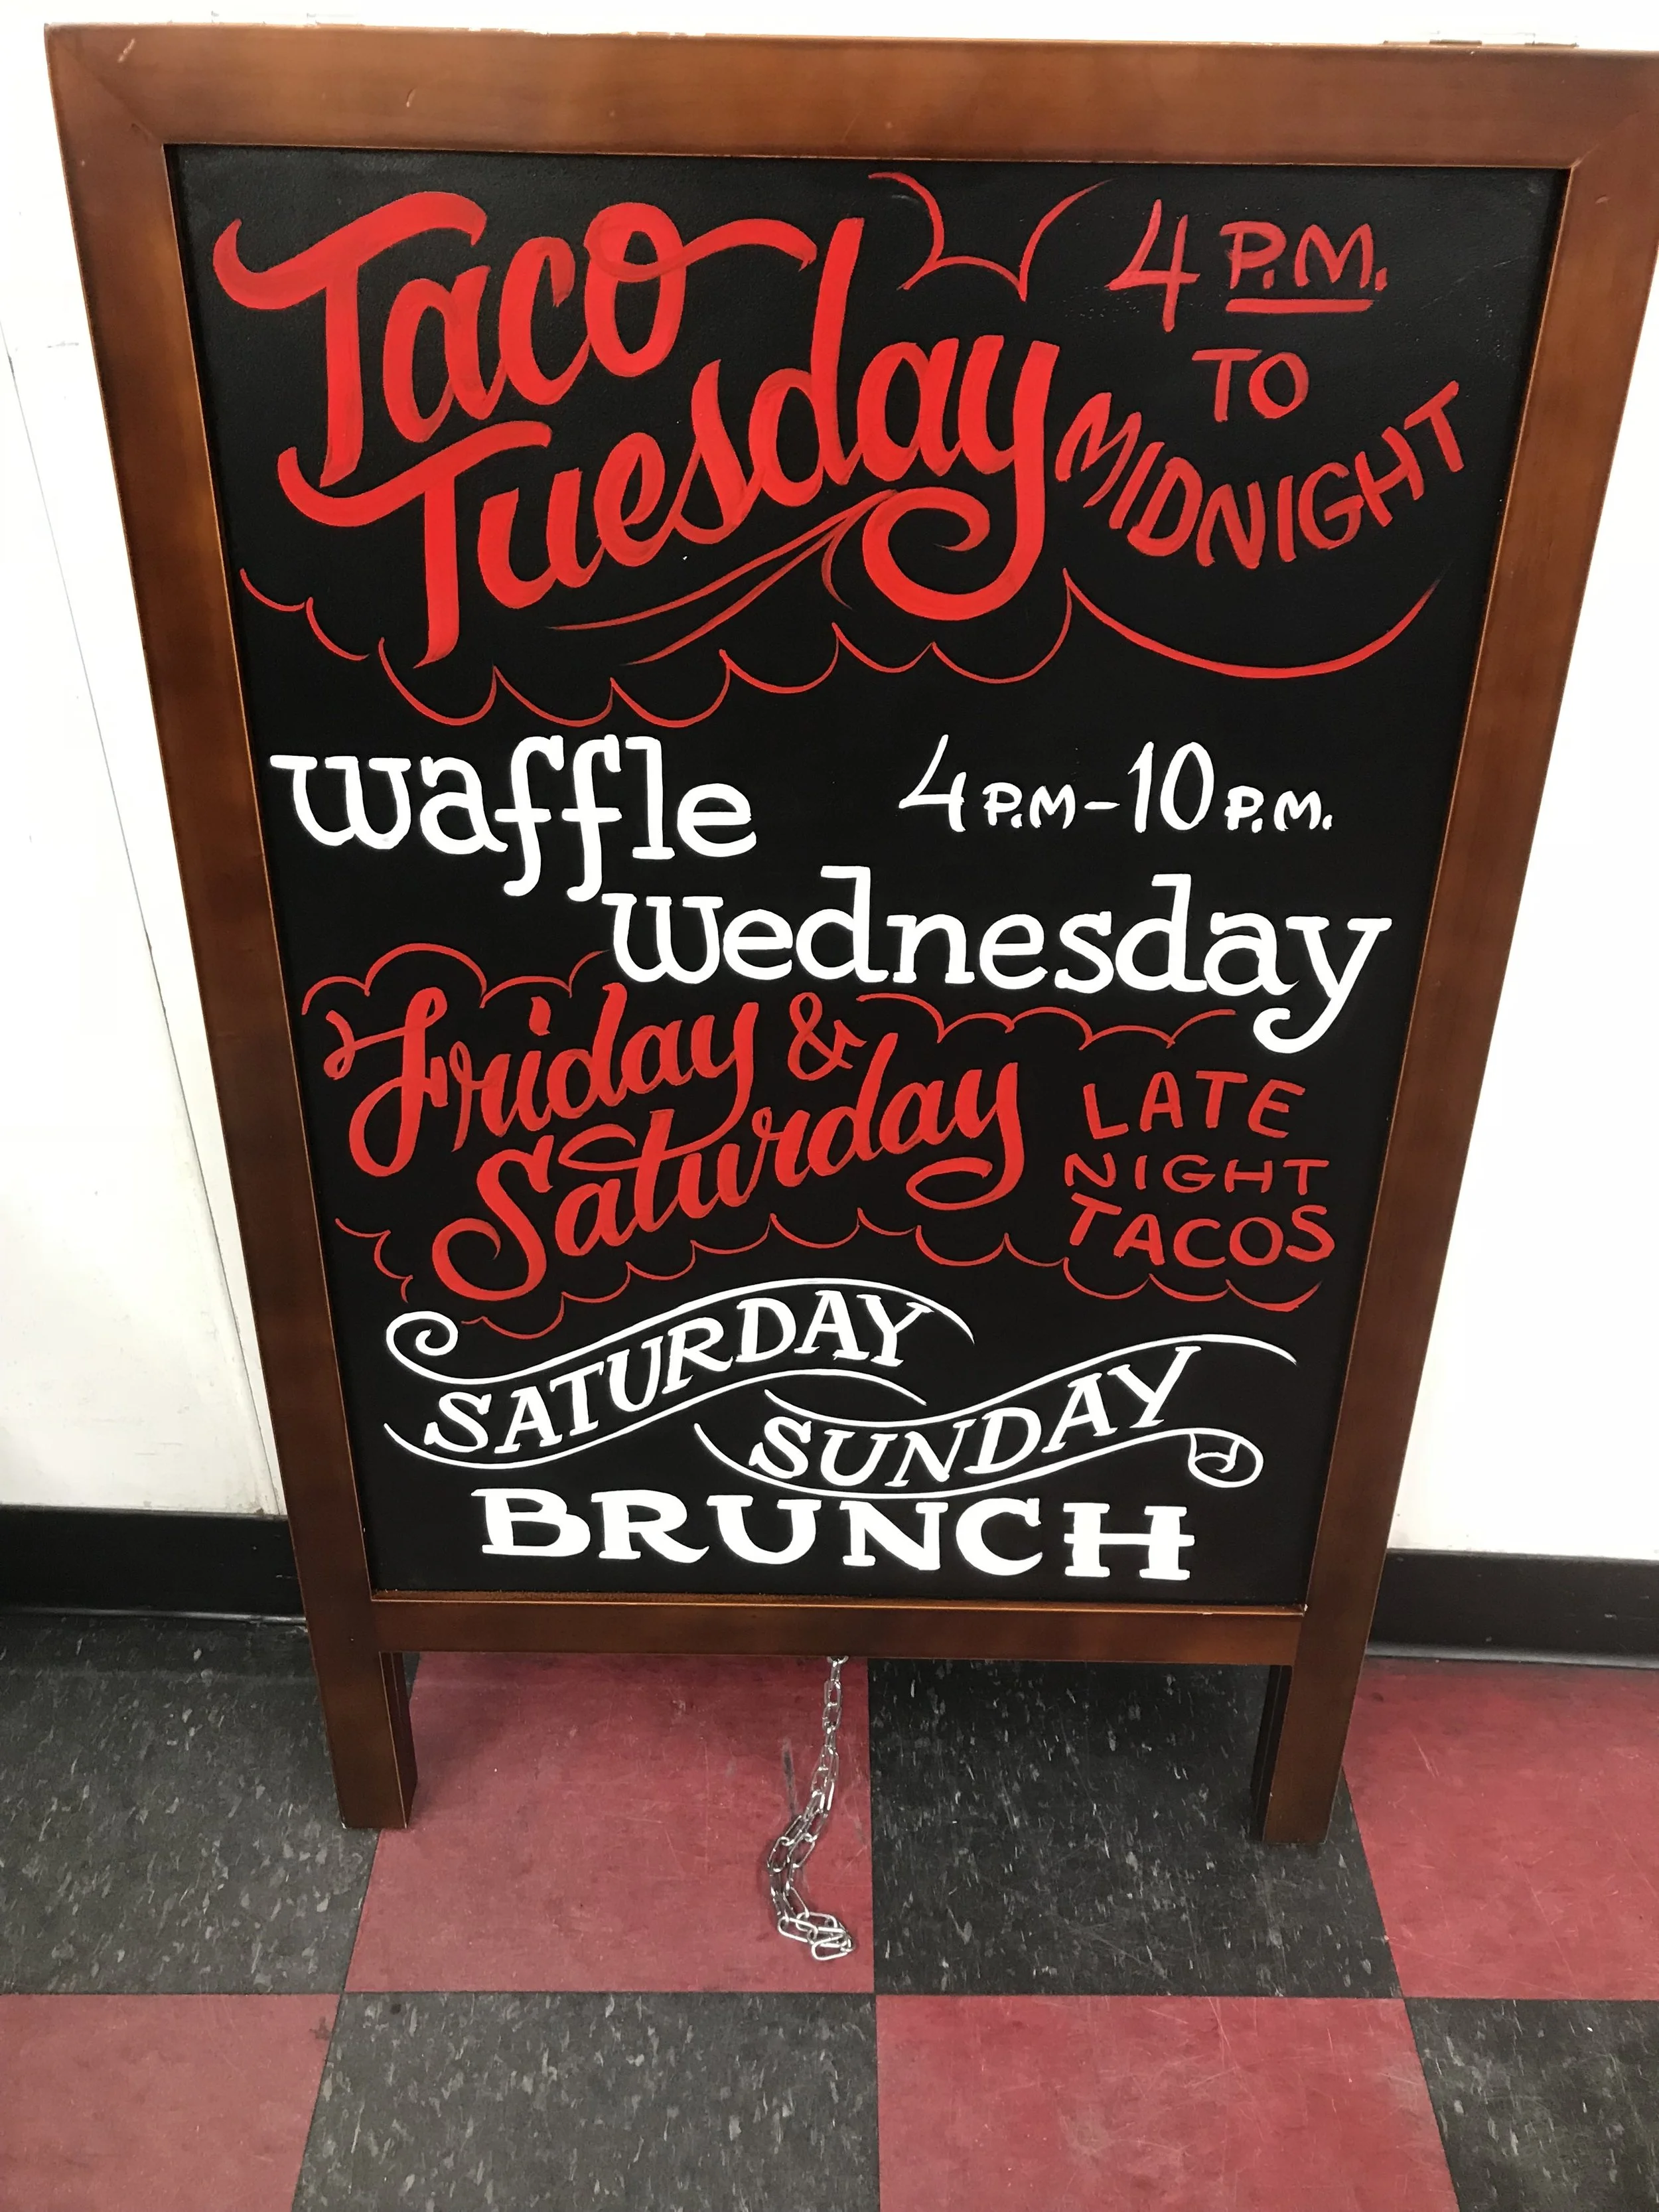 Taco
Tuesday
4 P.M.
TO
MIDNIGHT
waffle
4 P.M-10 P.M.
wednesday
Friday &
Saturday
LATE
NIGHT
TACOS
SATURDAY
SUNDAY
BRUNCH